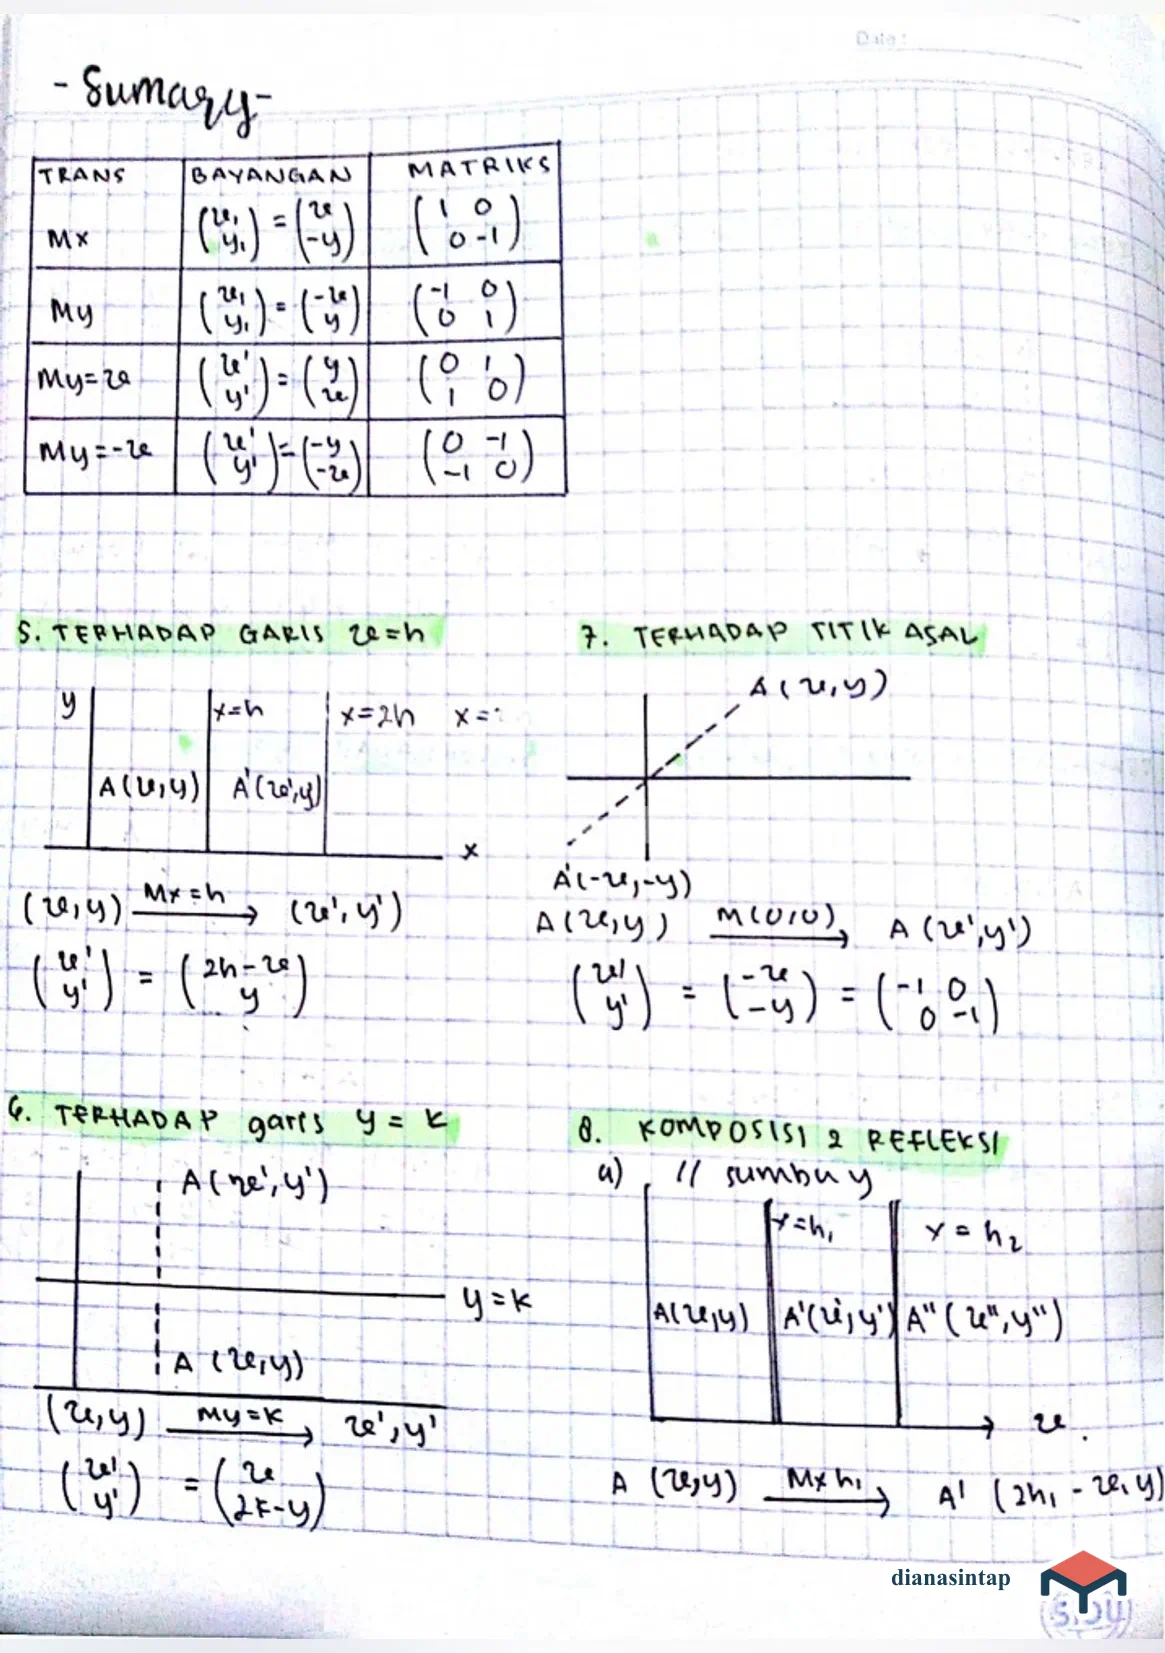 Date:
- Sumary -
TRANS BAYANGAN MATRIKS
Mx (x₁ y₁) = (x -y) (1 0 0 -1)
My (x₁ y₁) = (-x y) (-1 0 0 1)
My=x (x' y') = (y x) (0 1 1 0)
My=-x (x' y') = (-y -x) (0 -1 -1 0)
5. TERHADAP GARIS x=h
y x=h x=2h x=
A(x,y) A'(x',y)
x
(x,y) Mx=h → (x',y')
(x' y') = (2h-x y)
6. TERHADAP garis y = k
A(x',y')
y=k
A (x,y)
(x,y) My=k → x',y'
(x' y') = (x 2k-y)
7. TERHADAP TITIK ASAL
A(x,y)
A'(-x,-y)
A(x,y) M(0,0) → A (x',y')
(x' y') = (-x -y) = (-1 0 0 -1)
8. KOMPOSISI 2 REFLEKSI
a) // sumbu y
x=h₁ x=h₂
A(x,y) A'(x',y') A"(x",y")
x
A (x,y) Mx h₁ → A' (2h₁-x,y)
dianasintap